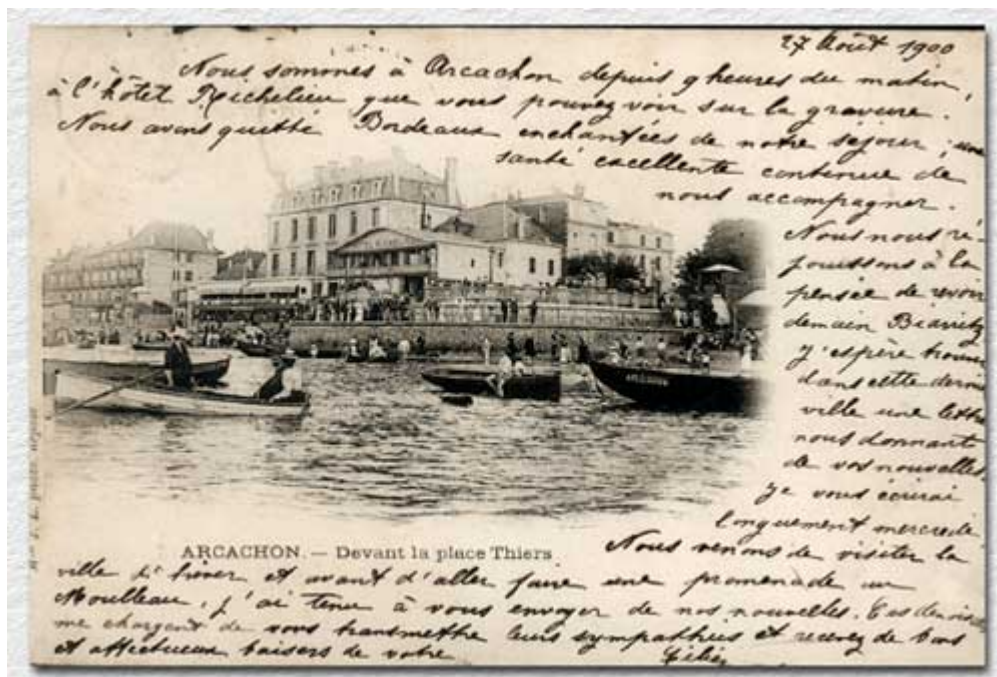 27 Août 1900
Nous sommes à Arcachon depuis 9 heures du matin,
à l'hôtel Richelieu que vous pouvez voir sur la gravure.
Nous avons quitté Bordeaux enchantées de notre séjour ; une
santé excellente continue de
nous accompagner.
Nous nous ré-
jouissons à la
pensée de revoir
demain Biarritz
J'espère trouver
dans cette dernière
ville une lettre
nous donnant
de vos nouvelles.
Je vous écrirai
longuement mercredi
ARCACHON. — Devant la place Thiers
Nous venons de visiter la
ville d'hiver et avant d'aller faire une promenade au
Moulleau, j'ai tenu à vous envoyer de nos nouvelles. Ces
me chargent de vous transmettre leurs sympathies et recevez de bons
et affectueux baisers de votre